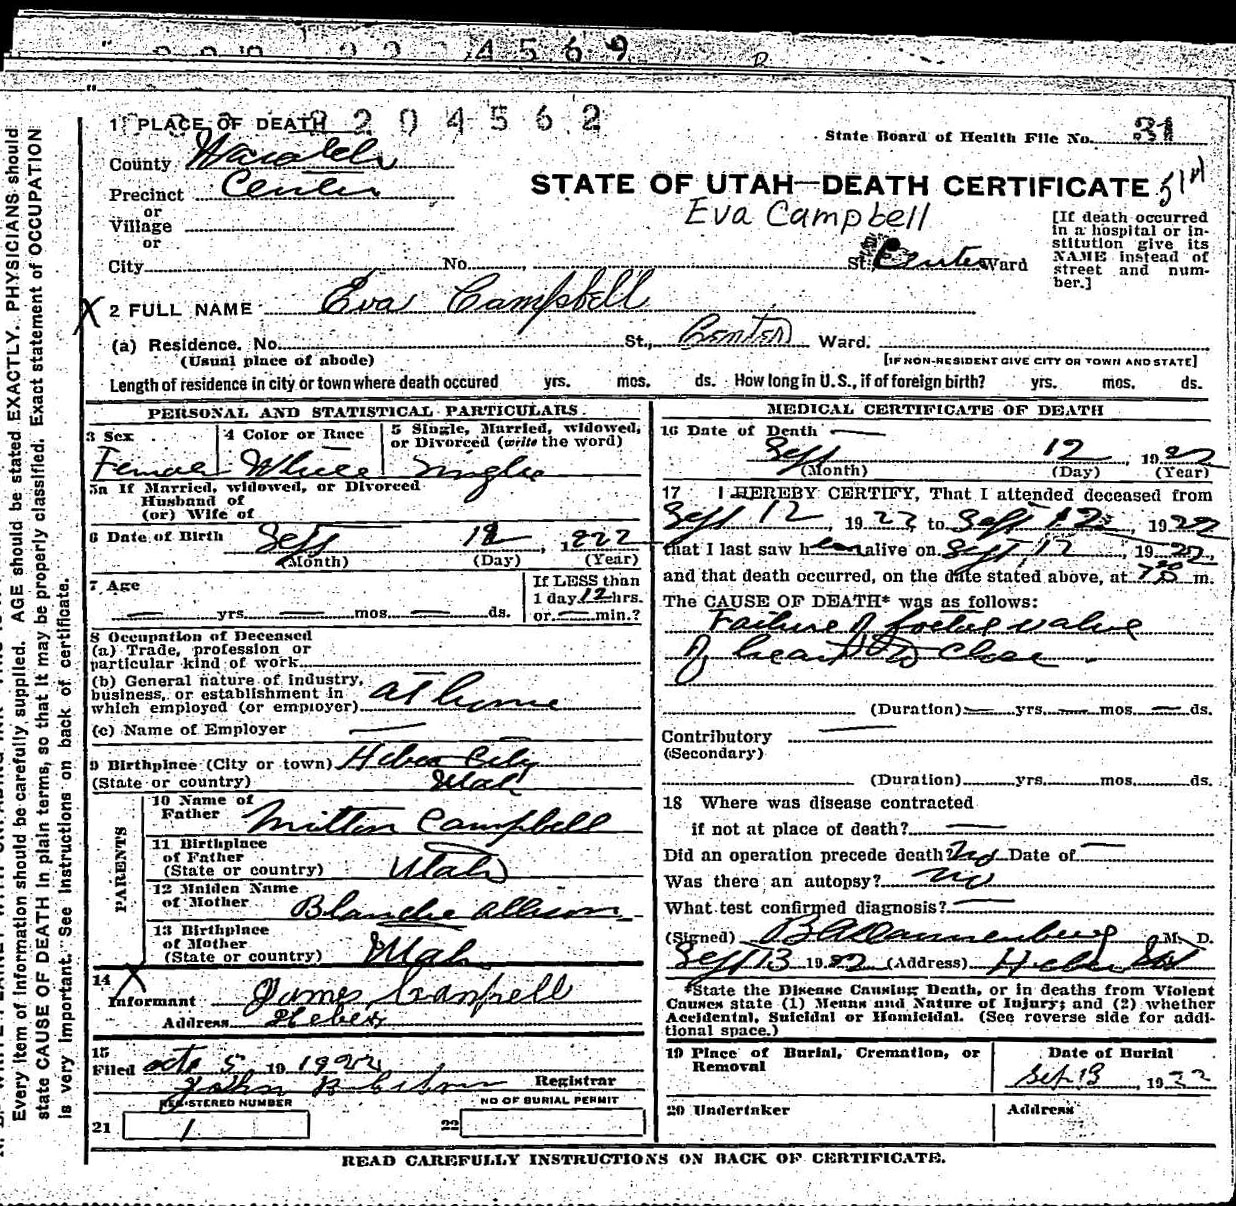 4569
204562
1 PLACE OF DEATH
State Board of Health File No. 31
County Wasatch
Precinct Center
STATE OF UTAH—DEATH CERTIFICATE
Eva Campbell
or
Village
or
[If death occurred in a hospital or in-
stitution give its
NAME instead of
street and num-
ber.]
City No. St. Center Ward
2 FULL NAME Eva Campbell
(a) Residence. No. St., Center Ward.
(Usual place of abode)
[IF NON-RESIDENT GIVE CITY OR TOWN AND STATE]
Length of residence in city or town where death occured yrs. mos. ds. How long in U.S., if of foreign birth? yrs. mos. ds.
PERSONAL AND STATISTICAL PARTICULARS.
3 Sex
Female
4 Color or Race
White
5 Single, Married, widowed,
or Divorced (write the word)
Single
5a If Married, widowed, or Divorced
Husband of
(or) Wife of
6 Date of Birth Sept 12, 1922
(Month) (Day) (Year)
7 Age
— yrs. — mos. — ds.
If LESS than
1 day 12 hrs.
or — min.?
8 Occupation of Deceased
(a) Trade, profession or
particular kind of work
(b) General nature of industry,
business, or establishment in
which employed (or employer) at home
(c) Name of Employer —
9 Birthplace (City or town) Heber City
(State or country) Utah
PARENTS
10 Name of
Father Milton Campbell
11 Birthplace
of Father
(State or country) Utah
12 Maiden Name
of Mother Blanche Allison
13 Birthplace
of Mother
(State or country) Utah
14 X
Informant James Campbell
Address Heber
15
Filed Oct 5, 19 1922
John Registrar
REGISTERED NUMBER
21 1
NO OF BURIAL PERMIT
22
MEDICAL CERTIFICATE OF DEATH
16 Date of Death —
Sept 12 1922
(Month) (Day) (Year)
17 I HEREBY CERTIFY, That I attended deceased from
Sept 12, 1922 to Sept 12, 1922
that I last saw her alive on Sept 12, 1922,
and that death occurred, on the date stated above, at m.
The CAUSE OF DEATH* was as follows:
Failure of foetus valve
of heart to close.
(Duration) — yrs. — mos. — ds.
Contributory —
(Secondary)
(Duration) yrs. mos. ds.
18 Where was disease contracted
if not at place of death? —
Did an operation precede death? No Date of —
Was there an autopsy? no
What test confirmed diagnosis? —
(Signed) Dannenberg M. D.
Sept 13 1922 (Address) Heber Ut
*State the Disease Causing Death, or in deaths from Violent
Causes state (1) Means and Nature of Injury; and (2) whether
Accidental, Suicidal or Homicidal. (See reverse side for addi-
tional space.)
19 Place of Burial, Cremation, or
Removal
Date of Burial
Sep 13, 1922
20 Undertaker
Address
READ CAREFULLY INSTRUCTIONS ON BACK OF CERTIFICATE.
Every item of information should be carefully supplied. AGE should be stated EXACTLY. PHYSICIANS should
state CAUSE OF DEATH in plain terms, so that it may be properly classified. Exact statement of OCCUPATION
is very important. See Instructions on back of certificate.